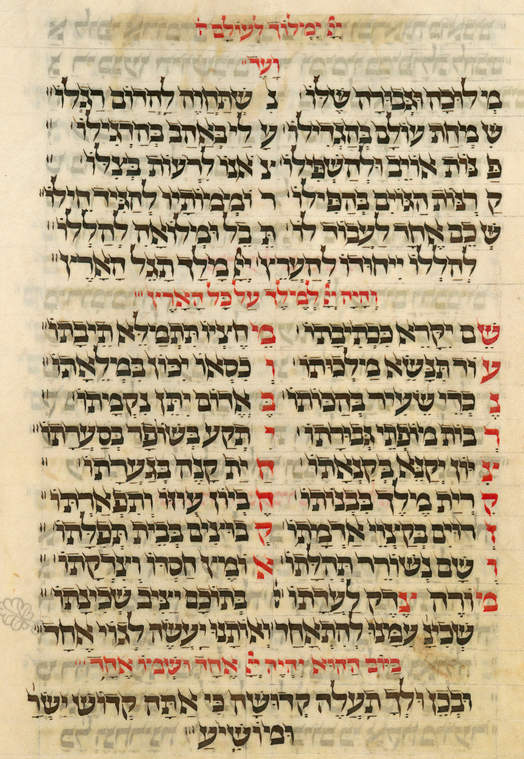 יי ימלוך לעולם
ועד
מלוכה וגבורה שלו נ שתחוה להדום רגלו
שמחת עולם בהגדילו ע לי באהב בהדגילו
פנות אויב ולהשפילו צאנו לרעות בצלו
קרנות הגוים בהפילו רוממותיו להגיד
שכם אחד לעבוד לו תבל ומלואה להללו
להללו ייחודו להעריץ יי מלך תגל הארץ
והיה יי למלך על כל הארץ
שם יקרא בכתיבתו מחציו תתמלא תיבתו
עוז תנשא מלכותו וכסאו יכון במלאתו
שעיר בהכותו באדום יתן נקמתו
רבות מופתי גבורתו יתקע בשופר בסערתו
יקנא בקנאתו חית קנה בגערתו
קרית מלך בבנותו חביון עוזו ותפארתו
דרים בקצוי אדמתו בבית תפלתו
ושם נשורר תהלתו אומץ חסדו וצדקתו
מורה צדק לעדתו בתוכם יציב שכינתו
עמנו להתאחד ואותנו יעשה לגוי אחד
ביום ההוא יהיה יי אחד ושמו אחד
ובכן ולך תעלה קדושה כי אתה קדוש ישר
ומושיע